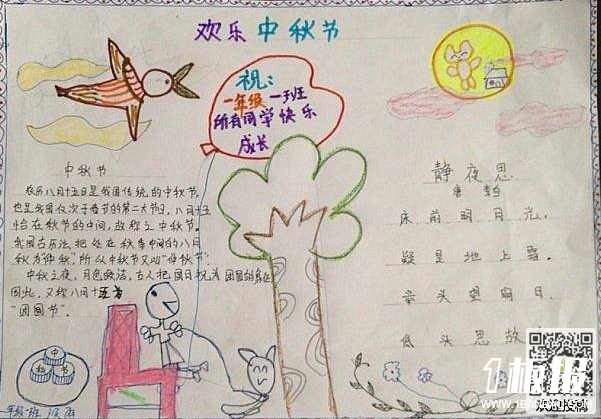 欢乐中秋节
祝：
一年级一班
所有同学快乐
成长
中秋节
农历八月十五日是我国传统的中秋节，
也是我国仅次于春节的第二大节日。八月十五
恰在秋节的中间，故称之中秋节。
我国古历法把处在秋季中间的八月
称为仲秋，所以中秋节又叫“仲秋节”。
中秋之夜，月色皎洁，古人把圆月视为团圆的象征
因此，又称八月十五为
“团圆节”。
中
秋
节
年级 班
静夜思
唐 李白
床前明月光，
疑是地上霜。
举头望明月，
低头思故
1板报
WWW.1BANBAO.COM